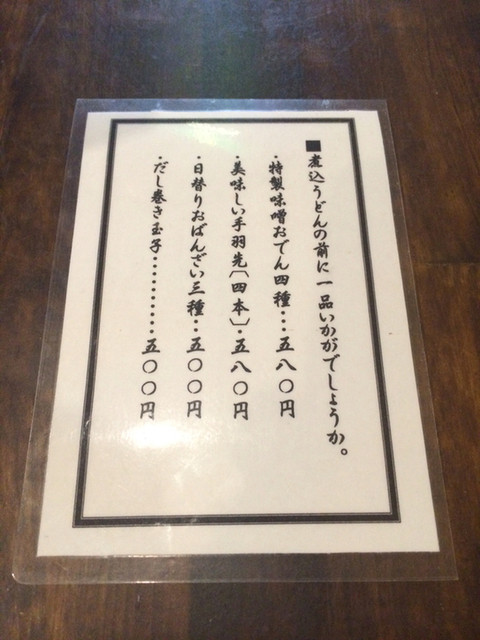 ■煮込うどんの前に一品いかがでしょうか。
・特製味噌おでん四種・・・五八〇円
・美味しい手羽先〔四本〕・五八〇円
・日替りおばんざい三種・・五〇〇円
・だし巻き玉子・・・・・・・・・・五〇〇円